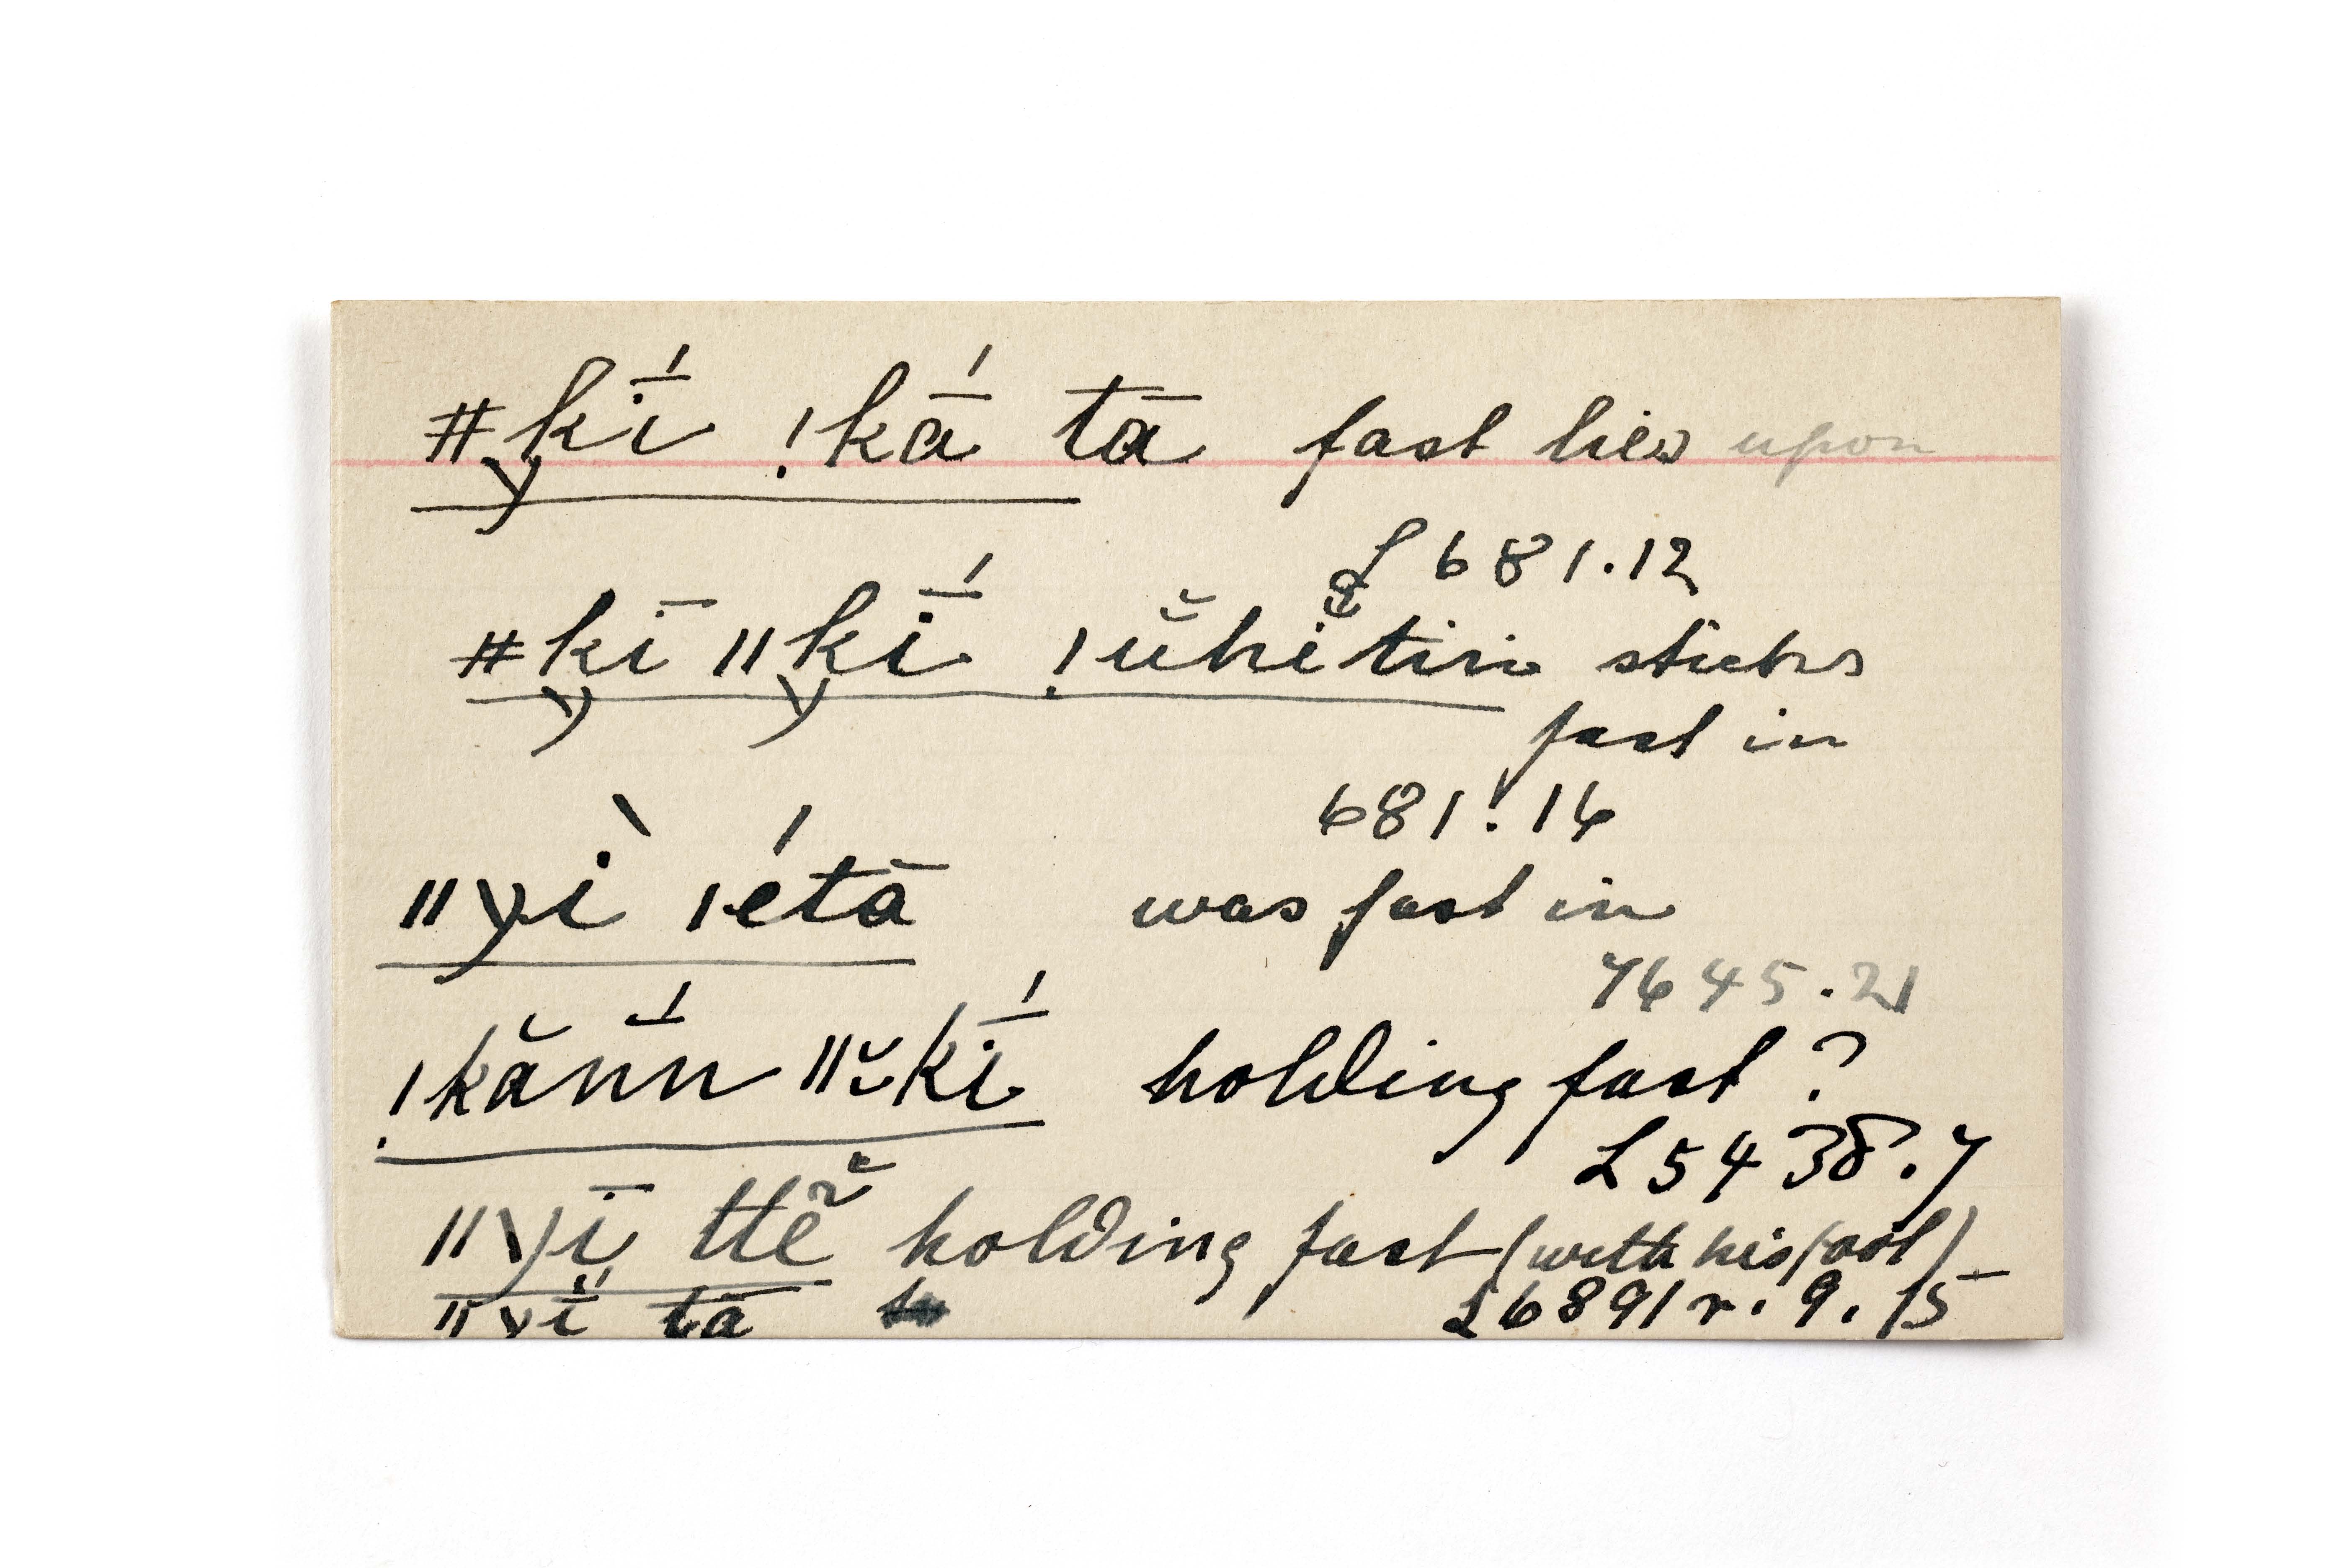 ǂkı̄́ ǃkā́ tā fast lies upon
L 681.12
ǂkī ǁkı̄́ ǃŭhĭ tin sticks
fast in
681.16
ǁχì ǀétā was fast in
7645.21
ǃkănń̄ ǁkı̄́ holding fast ?
L 5438.7
ǁχī ttĕ holding fast (with his foot)
ǁχī tā L 6891 r. 9. 15